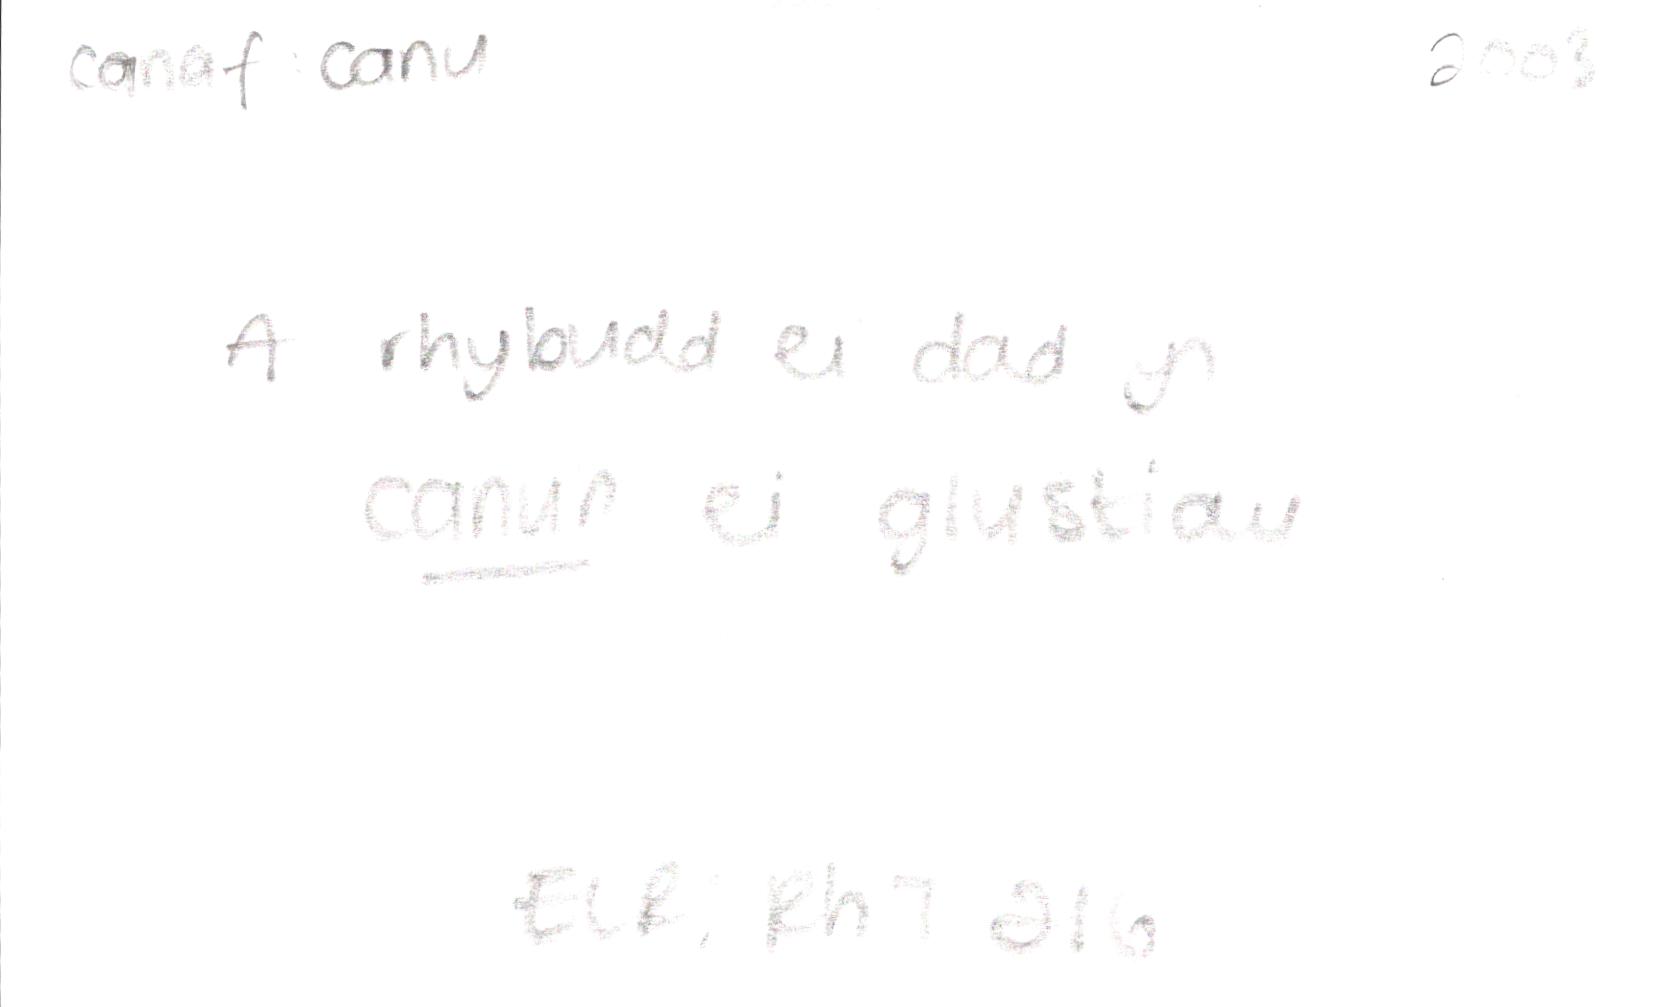 canaf : canu 2003
A rhybudd ei dad yn
canun ei glustiau
ELR; RhT 216